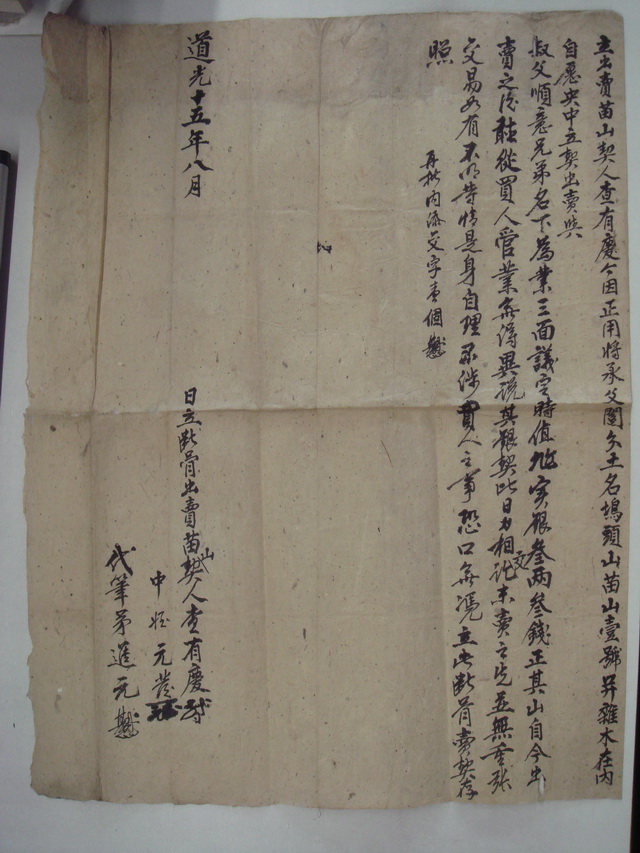 立出賣苗山契人查有慶今因正用將承父鬮分土名塢頭山苗山壹號并雜木在內
自愿央中立契出賣與
叔父順意兄弟名下為業三面議定時值 实銀叁两叁錢正其山自今出
賣之后聽從買人管業無得異說其銀契比日力相交訖未賣之先並無重張
交易如有不明等情是身自理不涉買人之事恐口無凴立此斷骨賣契存
照
再批內添交字壹個
道光十五年八月
日立斷骨出賣苗山契人查有慶
中姪元發
代筆弟進元